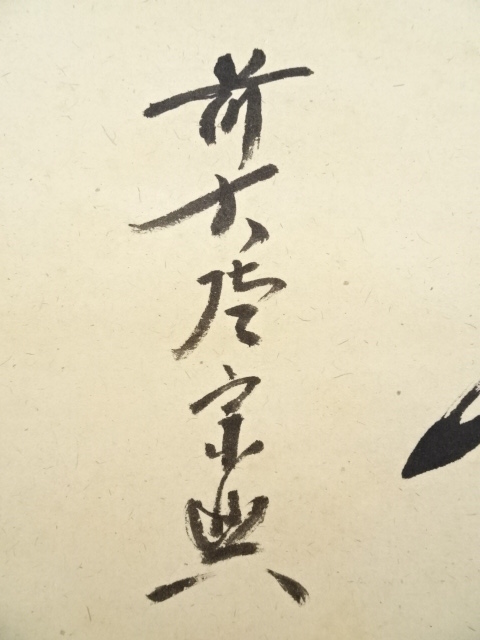 前大徳宗典